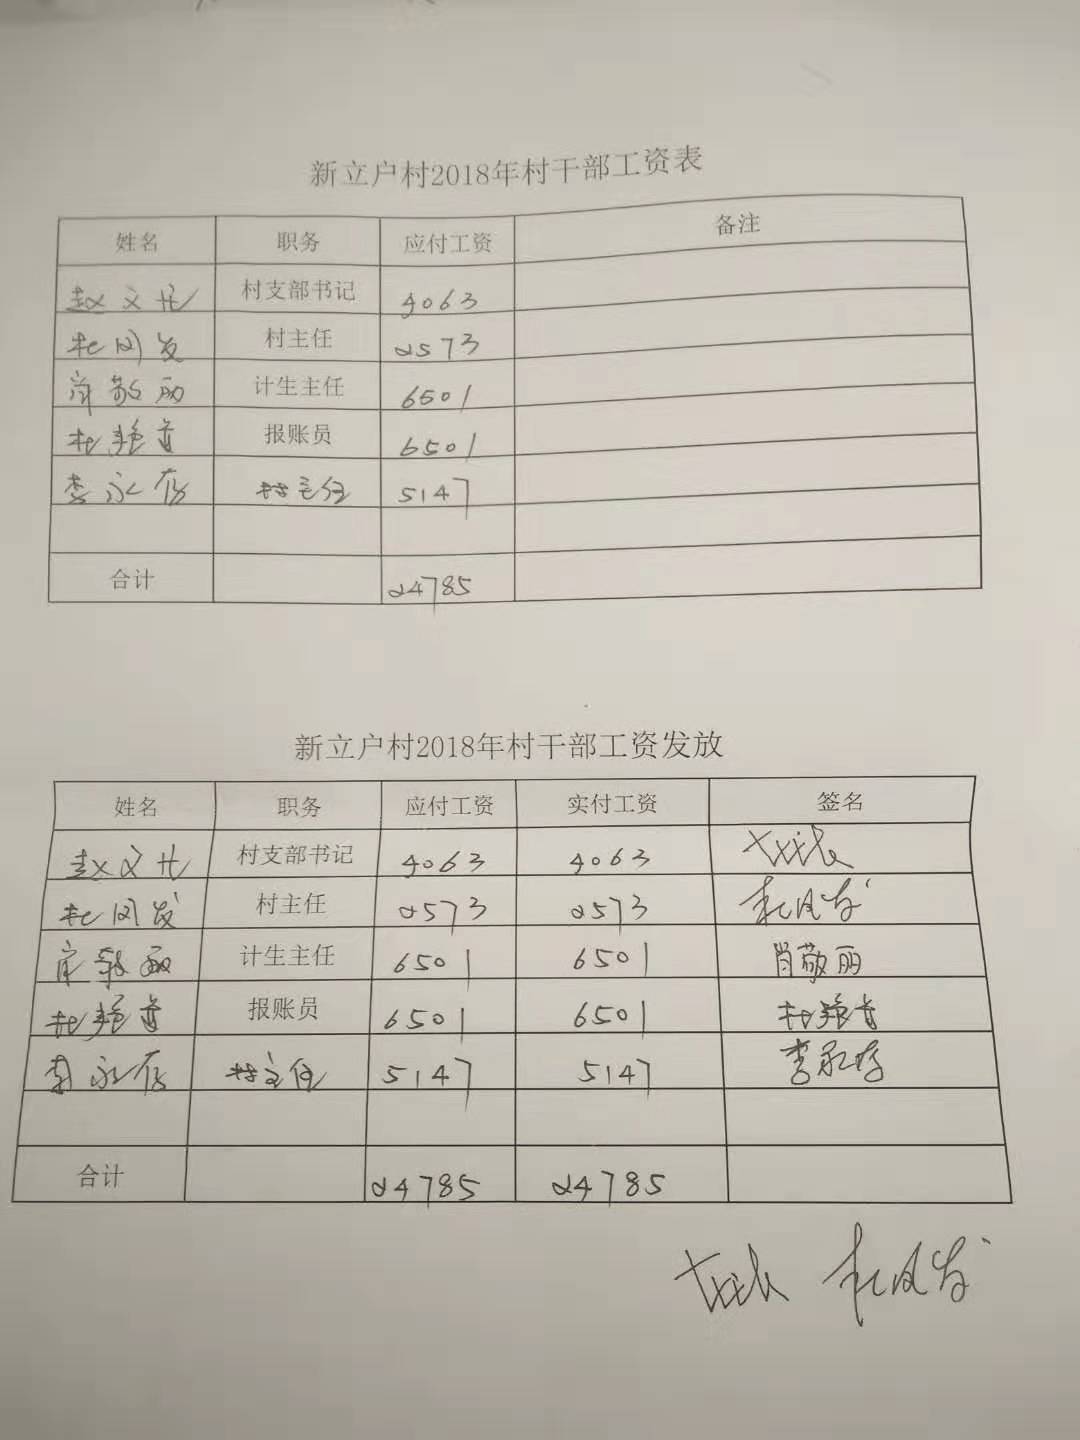 新立户村2018年村干部工资表
姓名 职务 应付工资 备注
赵文 村支部书记 4063
杜凤发 村主任 2573
肖敬丽 计生主任 6501
杜艳首 报账员 6501
李永存 村主任 5147
合计 24785
新立户村2018年村干部工资发放
姓名 职务 应付工资 实付工资 签名
赵文 村支部书记 4063 4063
杜凤发 村主任 2573 2573 杜凤发
肖敬丽 计生主任 6501 6501 肖敬丽
杜艳首 报账员 6501 6501 杜艳首
李永存 村主任 5147 5147 李永存
合计 24785 24785
杜凤发